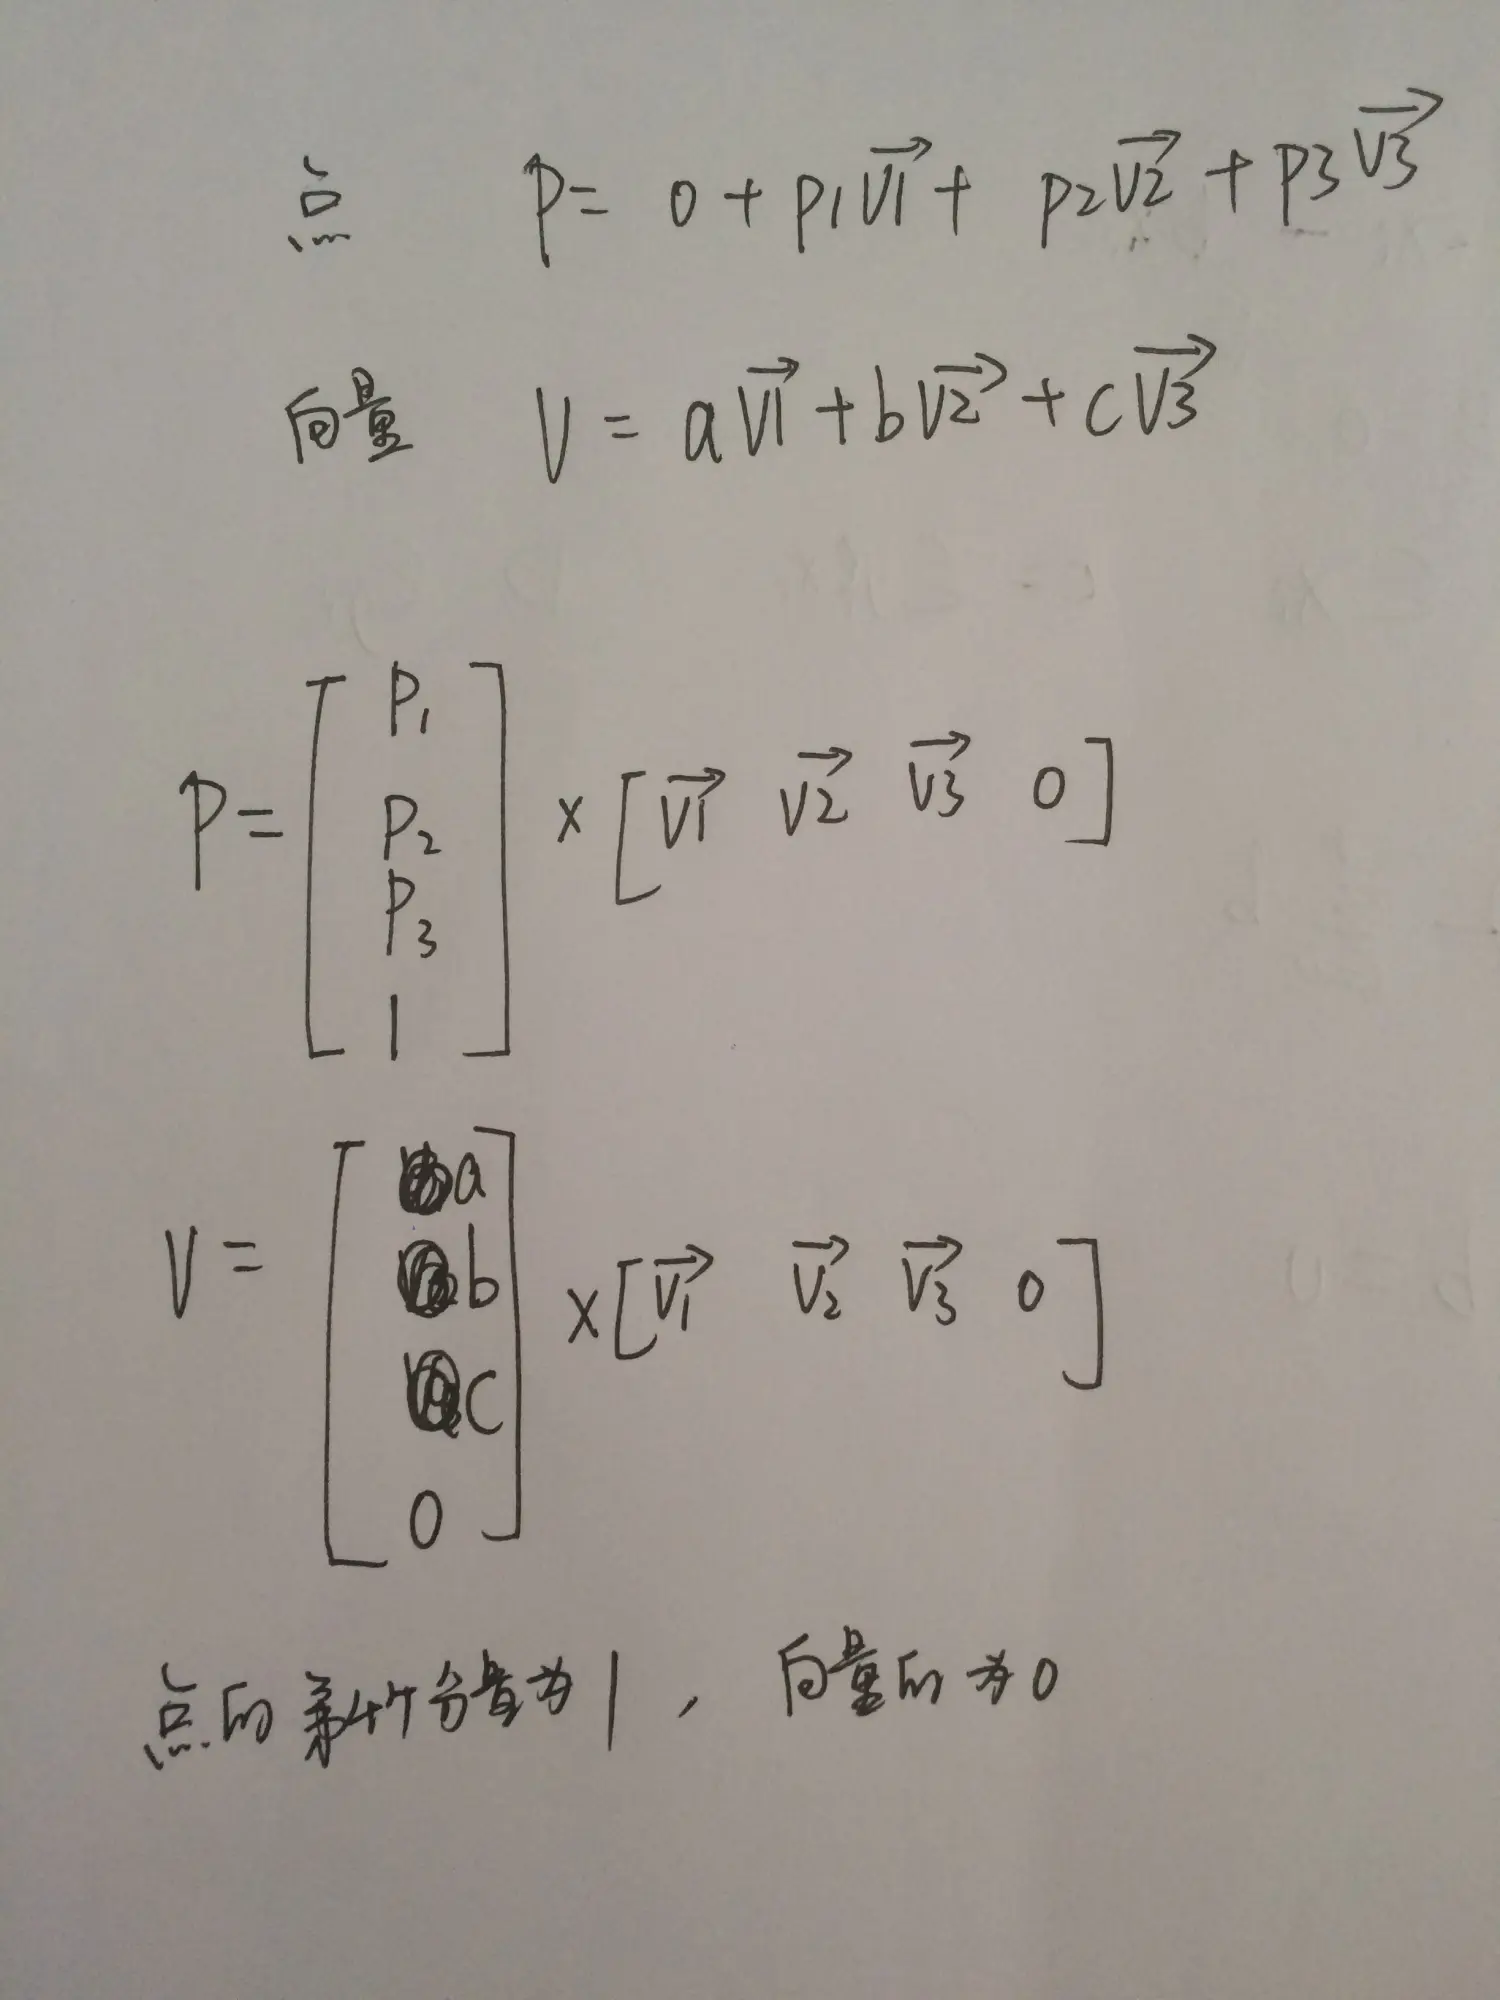 点 P = 0 + p1 v1→ + p2 v2→ + p3 v3→
向量 V = a v1→ + b v2→ + c v3→
P = [ p₁ p₂ p₃ 1 ] × [ v1→ v2→ v3→ 0 ]
V = [ a b c 0 ] × [ v₁→ v₂→ v₃→ 0 ]
点的第4个分量为1，向量的为0